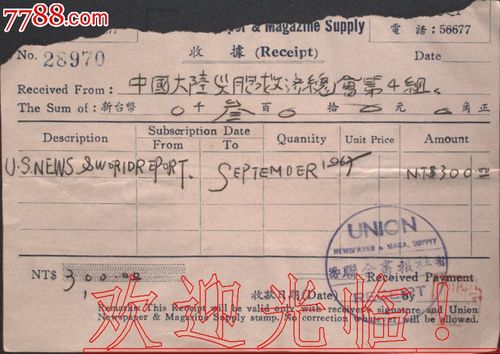 7788.com
& Magazine Supply
電話:56677
No. 28970
收據 (Receipt)
Date
Received From: 中國大陸災胞救濟總會第4組
The Sum of: 新台幣 0千叁百0拾0元0角正
Description Subscription Date To Quantity Unit Price Amount
U.S. NEWS & WORLD REPORT. SEPTEMBER NT$300.00
UNION
NEWSPAPER & MAGA. SUPPLY
RECEIPT
NT$ 300.00
Received Payment
收款日期(Date) by
Remarks: This Receipt will be valid only with receiver's signature and Union
Newspaper & Magazine Supply stamp. No correction whatever will be allowed.
欢迎光临!